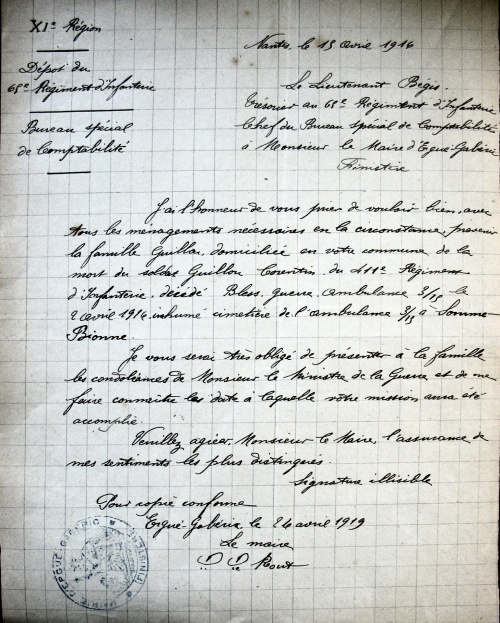 XIe Région
Nantes, le 15 avril 1916
Dépôt du
65e Régiment d'Infanterie
Bureau spécial
de Comptabilité
Le Lieutenant Bégis
Trésorier au 65e Régiment d'Infanterie
Chef du Bureau spécial de Comptabilité
à Monsieur le Maire d'Ergué-Gabéric
Finistère
J'ai l'honneur de vous prier de vouloir bien, avec
tous les ménagements nécessaires en la circonstance, prévenir
la famille Guillou, domiciliée en votre commune, de la
mort du soldat Guillou Corentin, du 411e Régiment
d'Infanterie, décédé Bless. guerre. ambulance 3/15 le
2 avril 1916 inhumé cimetière de l'ambulance 3/15 à Somme
Bionne.
Je vous serai très obligé de présenter à la famille
les condoléances de Monsieur le Ministre de la Guerre et de me
faire connaître les date à laquelle votre mission aura été
accomplie.
Veuillez agréer, Monsieur le Maire, l'assurance de
mes sentiments les plus distingués.
Signature illisible
Pour copie conforme
Ergué-Gabéric le 24 avril 1919
Le maire
MAIRIE D'ERGUÉ-GABÉRIC
FINISTÈRE